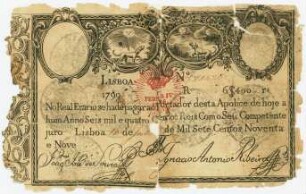 LISBOA N
1799 R 6$400 rs
No Real Erario se hade pagar ao Portador desta Apolice de hoje a
hum Anno Seiz mil e quatro centos Reis Com o Seu Competente
juro Lisboa de de Mil Sete Centos Noventa
e Nove
Ignacio Antonio Ribeiro